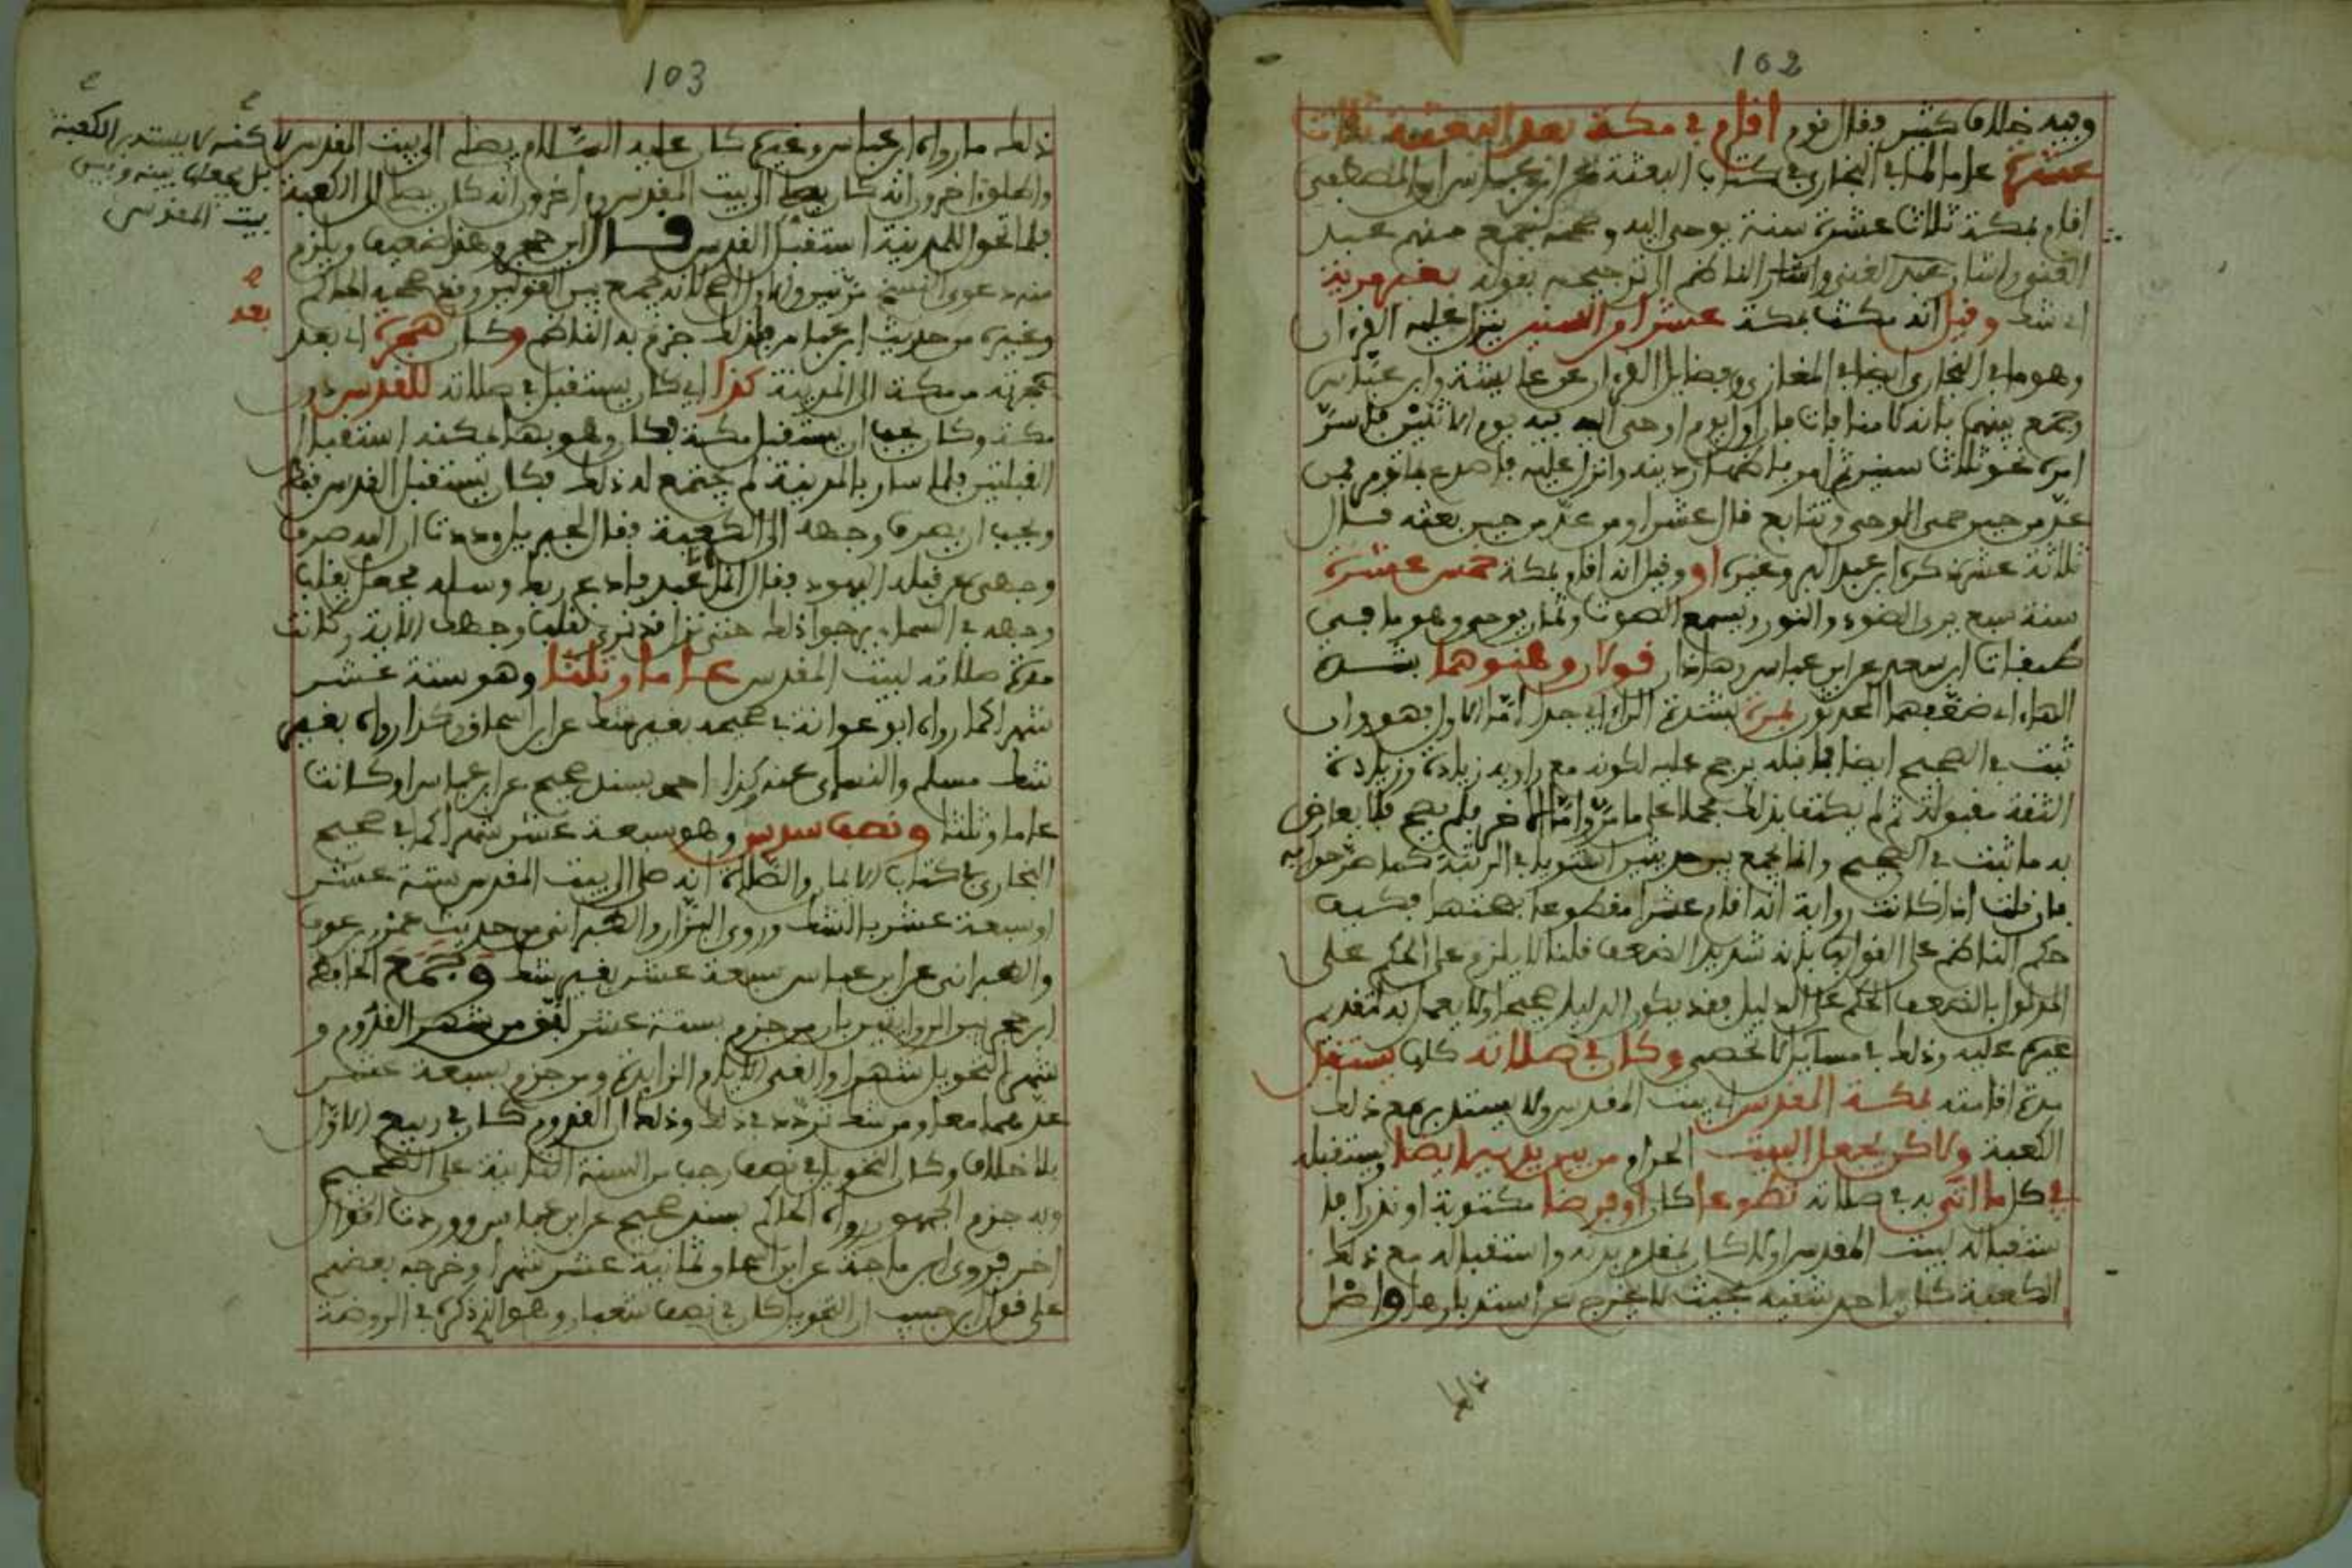 102
وفيه خلاف كثير فقال قوم اقام في مكة بعد البعثة ثلاث
عشرة على ما في البخاري في كتاب البعثة عن ابن عباس ان المصطفى
اقام بمكة ثلاث عشرة سنة يوحى اليه وصححه جمع منهم عبد
الغني واشار الناظم الى ترجيحه بقوله بغير مرية
اي شك وقيل انه مكث بمكة عشرا من السنين ينزل عليه القرءان
وهو ما في البخاري ايضا في المغازي وفضايل القرءان عن عايشة وابن عباس
وجمع بينهما بانه لا منافاة فان اول يوم اوحي اليه فيه يوم الاثنين فاسر
امره نحو ثلاث سنين ثم امر باظهار دينه وانزل عليه فاصدع بما تومر فمن
عد من حين حمي الوحي وتتابع قال عشرا ومن عد من حين بعثه قال
ثلاثة عشر ذكره ابن عبد البر وغيره او وقيل انه اقام بمكة خمس عشرة
سنة سبع يرى الضوء والنور ويسمع الصوت وثمان يوحى وهو ما في
طبقات ابن سعد عن ابن عباس وهاذان قولان وهنوهما بشدة
الهاء اي ضعفهما المحدثون بمرة بشدة الراء اي جدا اما الاول فهو وان
ثبت في الصحيح ايضا فما قبله يرجح عليه لكونه مع راويه زيادة وزيادة
الثقة مقبولة ثم لم يكتف بذلك محملا على ما مر واما الاخر فلم يصح فلا يعارض
به ما ثبت في الصحيح وانما يجمع بين حديثين استويا في الرتبة كما صرحوا به
فان قلت اذا كانت رواية انه اقام عشرا مقطوعا بصحتها فكيف
حكم الناظم على القول بانه شديد الضعف قلنا لا يلزم على الحكم على
المدلول بالضعف الحكم على الدليل فقد يكون الدليل صحيحا ولا يعمل به لتقديم
غيره عليه وذلك في مسايل لا تحصى وكان في صلاته كان يستقبل
مدة اقامته بمكة المقدس اي بيت المقدس ولا يستدبر مع ذلك
الكعبة ولاكن يجعل البيت الحرام من بين يديه ايضا ويستقبله
في كل ما اتى به في صلاته تطوعا كان او فرضا مكتوبة او نذرا فا
ستقباله لبيت المقدس اولا كان لمقام بدنه واستقباله مع ذلك
الكعبة كان باحد شقيه بحيث لا يخرج عن استدبارها واصل
103
ذلك ما رواه ابن عباس وغيره كان عليه السلام يصلي الى بيت المقدس
لاكنه لا يستدبر الكعبة
بل يجعلها بينه وبين
بيت المقدس
واطلق اخرون انه كان يصلي الى بيت المقدس واخرون انه كان يصلي الى الكعبة
فلما تحول للمدينة استقبل القدس قال ابن حجر وهو ضعيف ويلزم
منه دعوى النسخ مرتين والاول اصح لانه يجمع بين القولين وقد صححه الحاكم
وغيره من حديث ابن عباس فلذلك جزم به الناظم وكان هجرة اي بعد
بعد
هجرته من مكة الى المدينة كذا اي كان يستقبل في صلاته للقدس دون
مكة وكان يحب ان يستقبل مكة فكان وهو بها يمكنه استقبال
القبلتين فلما سار بالمدينة لم يجتمع له ذلك فكان يستقبل القدس فقط
ويحب ان يصرف وجهه الى الكعبة فقال لجبريل وددت ان الله صرف
وجهي عن قبلة اليهود فقال انما انا عبد فادع ربك وسله فجعل يقلب
وجهه في السماء يرجوا ذلك حتى نزل قد نرى تقلب وجهك الاية وكانت
مدة صلاته لبيت المقدس عاما وثلثا وهو ستة عشر
شهرا كما رواه ابو عوانة في صحيحه بغير شك عن ابن اسحاق وكذا رواه بغير
شك مسلم والنسائي عنه وكذا احمد بسند صحيح عن ابن عباس او كانت
عاما وثلثا ونصف سدس وهو سبعة عشر شهرا كما في صحيح
البخاري في كتاب الايمان والصلاة انه صلى الى بيت المقدس ستة عشر
او سبعة عشر بالشك وروى البزار والطبراني من حديث عمرو بن عوف
والطبراني عن ابن عباس سبعة عشر بغير شك وجمع الحافظ
ابن حجر بين الروايتين بان من جزم بستة عشر لفق من شهر القدوم و
شهر التحويل شهرا والغى الايام الزايدة ومن جزم بسبعة عشر
عدهما معا ومن شك تردد في ذلك وذلك ان القدوم كان في ربيع الاول
بلا خلاف وكان التحويل في نصف رجب من السنة الثانية على الصحيح
وبه جزم الجمهور رواه الحاكم بسند صحيح عن ابن عباس ووردت اقوال
اخر فروى ابن ماجة عن ابن اسحاق ثمانية عشر شهرا وخرجه بعضهم
على قول ابن حبيب ان التحويل كان في نصف شعبان وهو الذي ذكره في الروضة